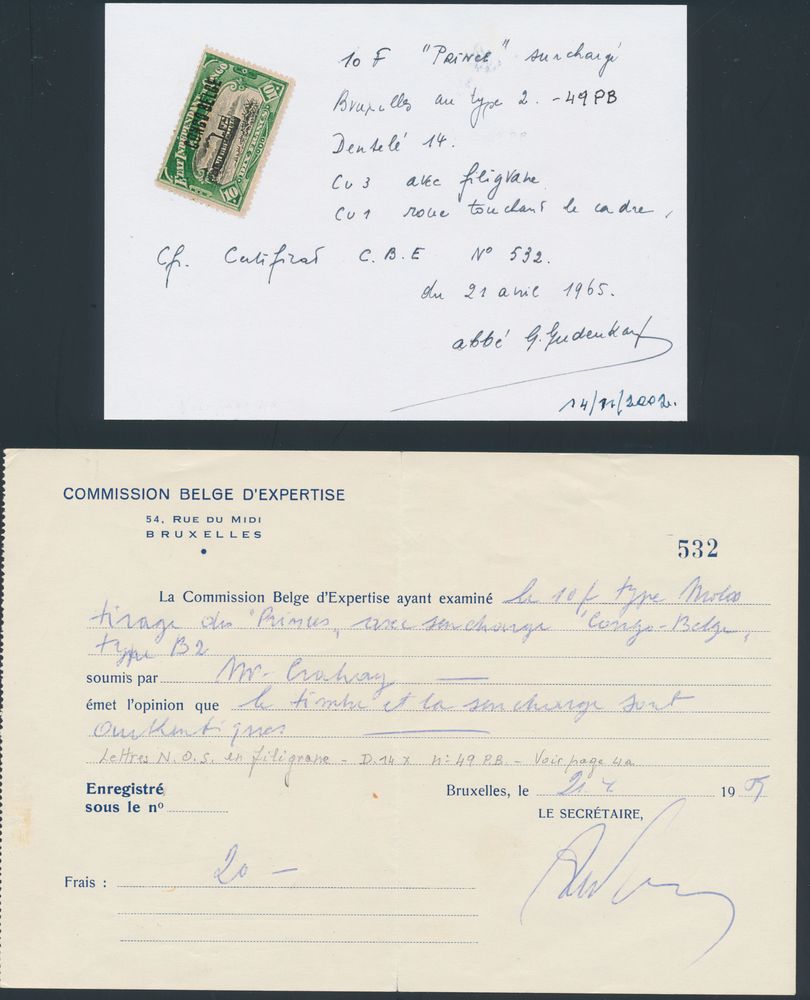 10 F "PRINCE" surchargé
Bruxelles au type 2. - 49 PB
Dentelé 14.
Cu 3 avec filigrane
Cu 1 roue touchant le cadre,
Cfr. Certificat C.B.E N° 532.
du 21 avril 1965.
abbé G. Gudenkauf
14/11/2002.
ETAT INDÉPENDANT DU CONGO
CONGO BELGE
10
10
COMMISSION BELGE D'EXPERTISE
54, RUE DU MIDI
BRUXELLES
532
La Commission Belge d'Expertise ayant examiné le 10 f type Mols
tirage des "Princes, avec surcharge "Congo-Belge,
type B2
soumis par Mr. Crahay
émet l'opinion que le timbre et la surcharge sont
authentiques
Lettres N.O.S. en filigrane - D.14 x n: 49 P.B. - Voir page 4a
Enregistré
sous le nº
Bruxelles, le 21-4 1965
LE SECRÉTAIRE,
Frais : 20 -